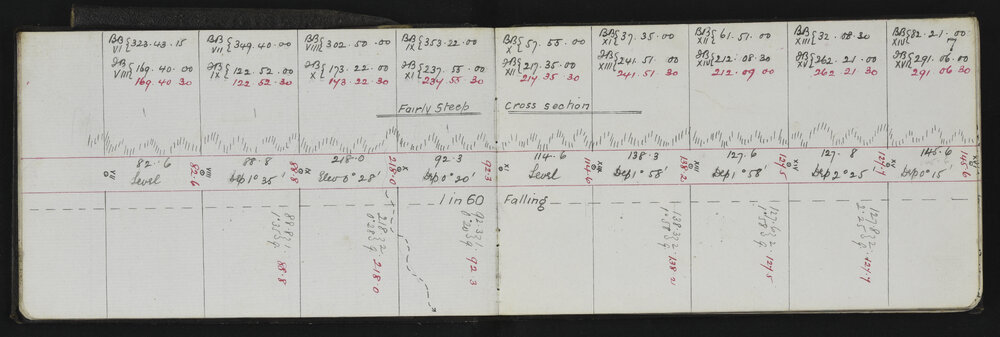 BB VI { 323.43.15
BB VII { 349.40.00
BB VIII { 302.50.00
BB IX { 353.22.00
BB X { 57.55.00
BB XI { 37.35.00
BB XII { 61.51.00
BB XIII { 32.08.30
BB XIV { 32.21.00
7
FB VIII { 169.40.00
FB IX { 122.52.00
FB X { 173.22.00
FB XI { 237.55.00
FB XII { 217.35.00
FB XIII { 241.51.00
FB XIV { 212.08.30
FB XV { 262.21.00
FB XVI { 291.06.00
169.40.30
122.52.30
173.22.30
237.55.30
217.35.30
241.51.30
212.09.00
262.21.30
291.06.30
Fairly Steep Cross section
82.6
88.8
218.0
92.3
114.6
138.3
127.6
127.8
145.6
Level
Dep 1° 35'
Elev 0° 28'
Dep 0° 20'
Level
Dep 1° 58'
Dep 1° 58'
Dep 2° 25'
Dep 0° 15'
82.6
88.8
218.0
92.3
114.6
138.2
127.5
127.7
145.6
1 in 60 Falling
88.8
1° 35'
88.8
218.0
0° 28'
218.0
92.3
0° 20'
92.3
138.3
1° 58'
138.2
127.6
1° 58'
127.5
127.8
2° 25'
127.7